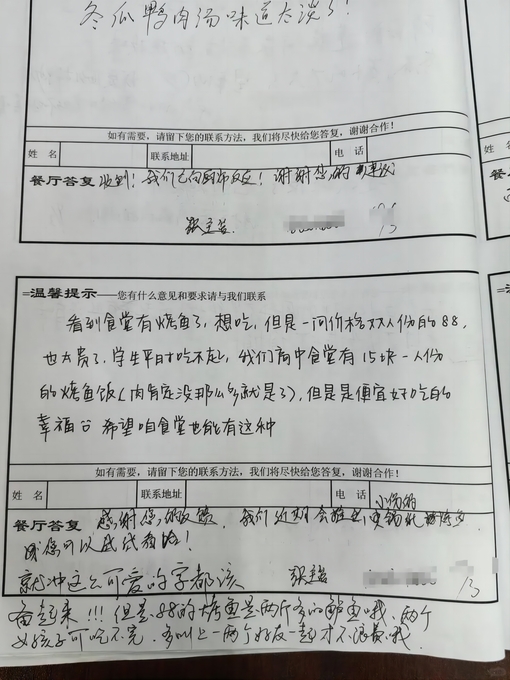 冬瓜鸭肉汤味道太淡了！
如有需要，请留下您的联系方法，我们将尽快给您答复，谢谢合作！
姓 名 联系地址 电 话
餐厅答复 收到！我们已向厨师反应！谢谢您的
张主管
=温馨提示——您有什么意见和要求请与我们联系
看到食堂有烤鱼了，想吃，但是一问价格双人份的88，
也太贵了，学生平时吃不起，我们高中食堂有15块一人份
的烤鱼饭（肉肯定没那么多就是了），但是是便宜好吃的
幸福 希望咱食堂也能有这种
如有需要，请留下您的联系方法，我们将尽快给您答复，谢谢合作！
姓 名 联系地址 电 话
小份的
餐厅答复 感谢您的反馈，我们近期会推出
到您可以试试
张主管
就冲这么可爱的字都该
备起来!!! 但是.88的烤鱼是两斤多的鲈鱼哦、两个
女孩子可吃不完.多叫上一两个好友一起才不浪费哦.